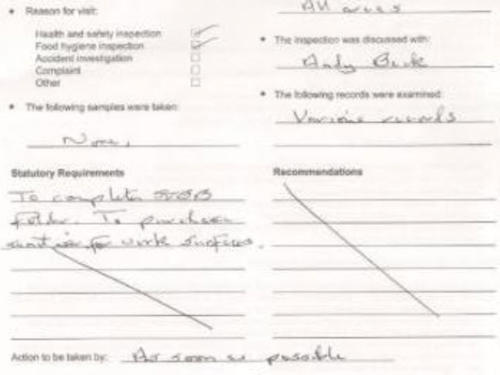 Reason for visit:
All areas
Health and safety inspection
Food hygiene inspection
Accident investigation
Complaint
Other
The inspection was discussed with:
Andy
The following samples were taken:
None,
The following records were examined
Various records
Statutory Requirements
To complete SFBB
folder. To purchase
sanitiser for work surfaces.
Recommendations
Action to be taken by: As soon as possible